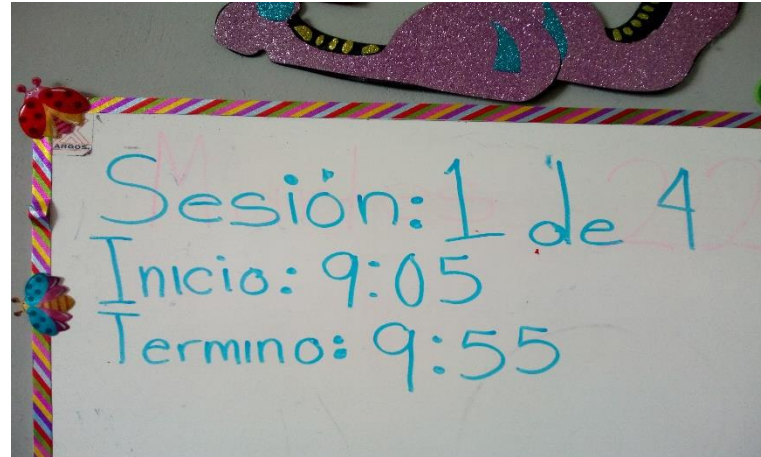 ARGOS
Sesión: 1 de 4
Inicio: 9:05
Termino: 9:55